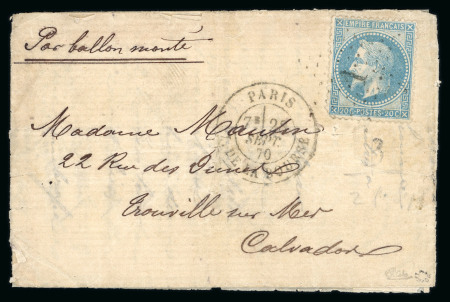 Par ballon monté
EMPIRE FRANÇAIS
20 C POSTES 20 C
PARIS
7E
SEPT.
70
DE LA BOURSE
Madame
22 Rue des
Trouville sur Mer
Calvados